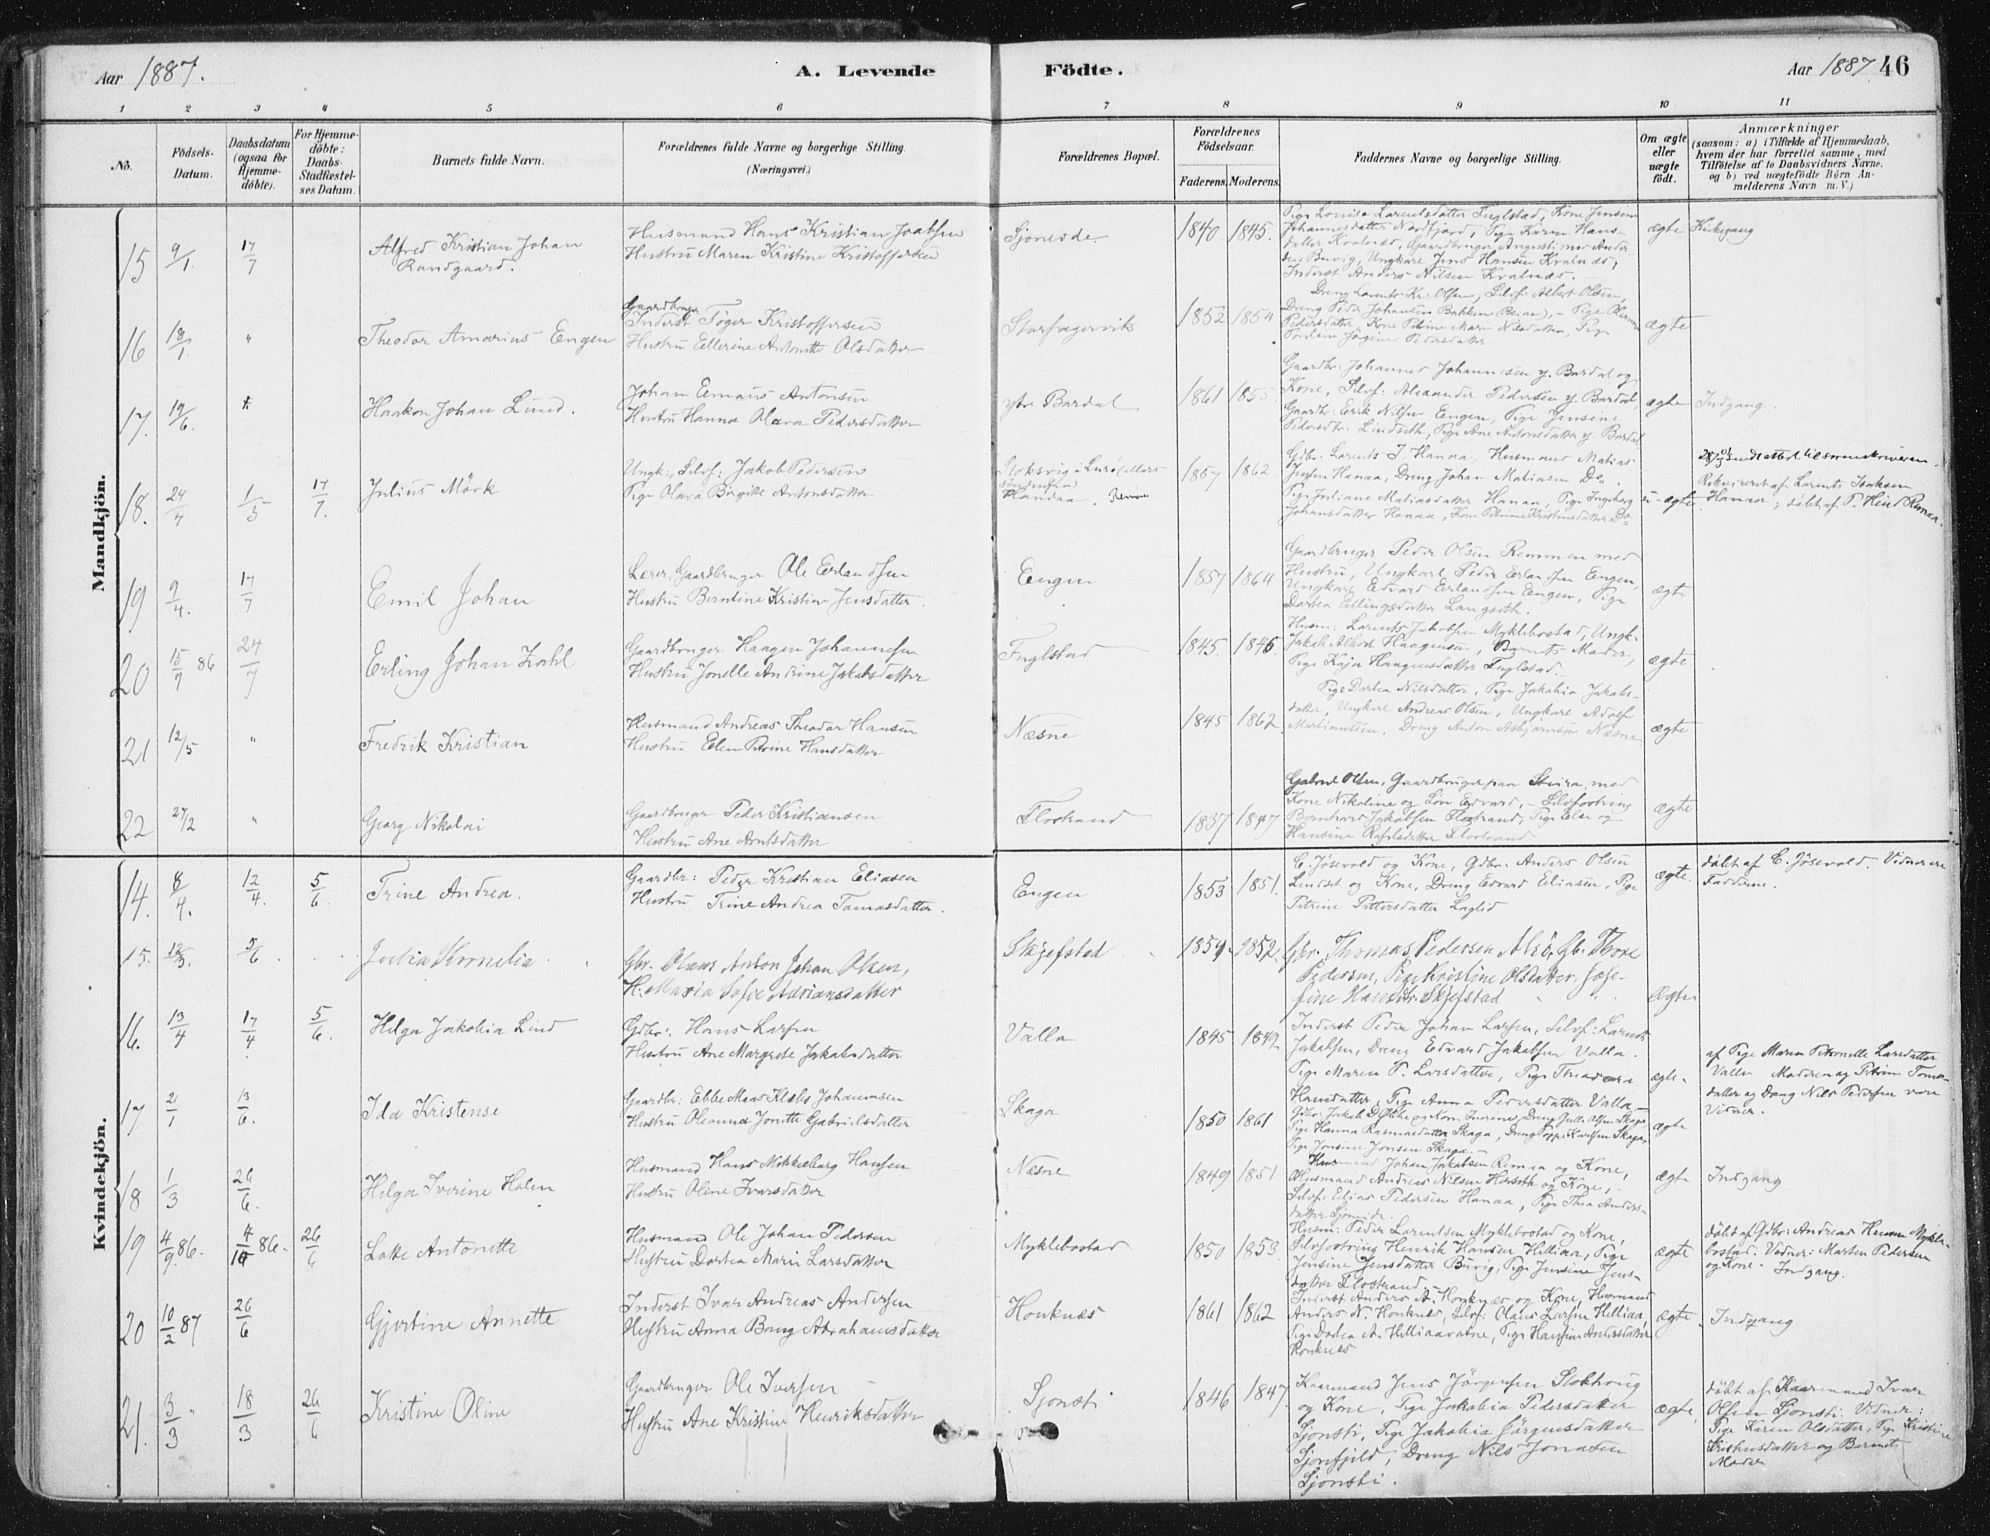 Aar 1887.
A. Levende
Födte.
Aar 1887
46
1 2 3 4 5 6 7 8 9 10 11
No.
Födsels-Datum.
Daabsdatum (ogsaa for Hjemme-döbte).
For Hjemme-döbte: Daabs-Stadfæstel-ses Datum.
Barnets fulde Navn.
Forældrenes fulde Navne og borgerlige Stilling. (Næringsvei.)
Forældrenes Bopæl.
Forældrenes Födselsaar.
Faderens. Moderens.
Faddernes Navne og borgerlige Stilling.
Om ægte eller uægte födt.
Anmærkninger
(saasom: a) i Tilfælde af Hjemmedaab,
hvem der har forrettet samme, med
Tilföielse af to Daabsvidners Navne,
og b) ved uægtefödte Börn An-
melderens Navn m. V.)
Mandkjön.
15 9/1. 17/7 Alfred Kristian Johan
Randgaard.
Husmand Hans Kristian Joabsen
Hustru Maren Kristine Kristoffersen
Sjoneide. 1840 1845.
Pige Lovisa Larentsdatter Fuglstad, Kone Jensine
Johannesdatter Nordfjord, Pige Karen Hans-
datter Kvalnæs, Gaardbruger Augustinus Ander
sen Buvig, Ungkarl Jens Hansen Kvalnæs,
Inderst Anders Nilsen Kvalnæs.
ægte
16 18/1. " Theodor Amarius Engen
Gaardbruger
Inderst Töger Kristoffersen
Hustru Ellerine Antonette Olsdatter
Storfagervik 1852 1854
Dreng Larents Kr: Olsen, Selvf: Albert Olsen,
Dreng Peder Johansen Bakken (Beian), - Pige
Pedersdatter, Kone Petrine Marie Nilsdatter, Pige
Jörgine Pedersdatter.
ægte
17. 19/6. Haakon Johan Lund.
Johan Antonsen
Hustru Hanna Olava Pedersdatter
ytre Bardal 1861 1855.
Gaardbr: Johannes Johannesen y. Bardal og
Kone, Selvf: Alexander Pedersen y. Bardal,
Gaardbr: Erik Nilsen Engen, Pige Jensine
Pedersdtr: Lindseth, Pige Ane Antonsdatter y. Bardal
ægte Indgang.
18. 24/4 1/5 17/7. Julius Mörk
Ungk:, Selvf: Jakob Pedersen
Pige Olava Birgitte Antonsdatter
Stoksvig i Lurö
Handaa. 1857 1862
Gdbr: Larents J. Hanaa, Husmand Matias
Jensen Hanaa, Dreng Johan Matiasen Do.
Pige Juliane Matiasdatter Hanaa, Pige Ingeborg
Johansdatter Hanaa, Kone Petrine Kristensdatter Do
u-ægte
Rekvireret af Larents Isaksen
Hanaa, döbt af P. Heid Remaa.
19 9/4. 17/7 Emil Johan
Lærer, Gaardbruger Ole Erlandsen
Hustru Berntine Kristine Jensdatter.
Engen 1857 1864
Gaardbruger Peder Olsen Remmen med
Hustru, Ungkarl Peder Erlandsen Engen,
Ungkarl Edvard Erlandsen Engen, Pige
Dortea Ellingsdatter Langseth.
ægte
20 15/9 86 24/7 Erling Johan Zahl
Gaardbruger Haagen Johannesen
Hustru Jonelle Andrine Jakobsdatter
Fuglstad 1845. 1846.
Husm: Larents Jakobsen Myklebostad, Ungk:
Jakob Albert Haagensen, Barnets Moder,
Pige Kaja Haagensdatter Fuglstad.
ægte
21 12/5 " Fredrik Kristian
Husmand Andreas Theodor Hansen
Hustru Elen Petrine Hansdatter
Næsne 1845 1862.
Pige Dortea Nilsdatter, Pige Jakobia Jakobs-
datter, Ungkarl Andreas Olsen, Ungkarl Adolf
Martinussen, Dreng Anton Asbjörnsen Næsne
ægte
22 27/2 " Georg Nikolai
Gaardbruger Peder Kristiansen
Hustru Ane Arntsdatter
Flostrand 1837 1847
Gabriel Olsen, Gaardbruger paa Stuira, med
Kone Nikoline og Sön Edvard, - Selvfostring
Bernhard Jakobsen Flostrand, Pige Else og
Hansine Rafelsdatter Flostrand
ægte
Kvindekjön.
14. 8/4. 12/4. 5/6. Trine Andrea.
Gaardbr: Peder Kristian Eliasen
Hustru Trine Andrea Tomasdatter.
Engen 1853 1851.
C. Jösevold og Kone, Gdbr: Anders Olsen
Lindset og Kone, Dreng Edvard Eliasen, Pige
Petrine Pettersdatter
ægte.
döbt af C. Jösevold. Vidnerne
Fadderne.
15. 12/3. 5/6 Julia Kornelia
Gbr. Olaus Anton Johan Olsen,
H. Maria Sofie Adriansdatter
Skjefstad 1854. 1852.
Gbr. Thomas Pedersen Alsö, Gb. Thore
Pedersen, Pige Kristine Olsdatter, Jose-
fine Hansdtr. Skjefstad
Ægte.
16. 13/4 17/4 5/6. Helga Jakobia Lind
Gdbr: Hans Larsen
Hustru Ane Margrete Jakobsdatter
Valla 1845 1849
Inderst Peder Johan Larsen, Selvf: Larents
Jakobsen, Dreng Edvard Jakobsen Valla.
Pige Maren P. Larsdatter, Pige Theodora
Hansdatter, Pige Anna Pedersdatter Valla.
ægte.
af Pige Maren Petronelle Larsdatter
Valla Moderen og Petrine Toma
datter og Dreng Nils Pedersen vare
Vidner.
17 2/1 13/6. Ida Kristense
Gaardbr: Ebbe Maas Klæbo Johannesen
Hustru Oleanna Jonette Gabrielsdatter
Skaga 1850 1861
Pige Hanna Rasmusdatter Skaga, Dreng Karlsen Skaga
Pige Jensine Jonsen Skaga.
ægte
18 1/3 26/6. Helga Iverine Holen
Husmand Hans Mikkelborg Hansen
Hustru Oline Ivarsdatter
Næsne 1849 1851
Husmand Johan Jakobsen Remaa og Kone,
Husmand Andreas Nilsen og Kone,
Selvf: Elias Pedersen Hanaa, Pige Thea Anders-
datter Sjoneide.
ægte Indgang
19 4/9 86. 4/10 86. 26/6 Lotte Antonette
Husmand Ole Johan Pedersen
Hustru Dortea Marie Larsdatter
Myklebostad 1850 1853.
Husm: Peder Larentsen Myklebostad og Kone,
Selvfostring Henrik Hansen Helliaa, Pige
Jensine Jensdatter Buvig, Pige Jensine Jens-
datter Flostrand
ægte
döbt af Gdbr: Andreas Hansen Mykle-
bostad. Vidner: Morten Pedersen
og Kone. Indgang.
20 10/2 87 26/6 Gjertine Annette
Inderst Ivar Andreas Andersen
Hustru Anna Berg Abrahamsdatter
Honknæs 1861 1862
Inderst Anders A. Honknæs og Kone, Husmand
Anders N. Honknæs, Selvf: Olaus Larsen Helliaa,
Pige Dortea A. Helliaavatne, Pige Hansine Andersdatter
Honknæs
ægte. Indgang
21. 3/3 18/3 26/6 Kristine Oline
Gaardbruger Ole Iversen
Hustru Ane Kristine Henriksdatter
Sjonsti 1846 1847.
Kaarmand Jens Jörgensen
og Kone, Pige Jakobia Pedersdatter
Sjonsti, Pige Jakobia Jörgensdatter
Sjonfjeld, Dreng Nils Jonasen
Sjonsti.
ægte.
döbt af Kaarmand Ivar
Olsen Sjonsti. Vidner:
Pige Karen Olsdatter, Pige Kristine
Kristensdatter og Barnets
Moder